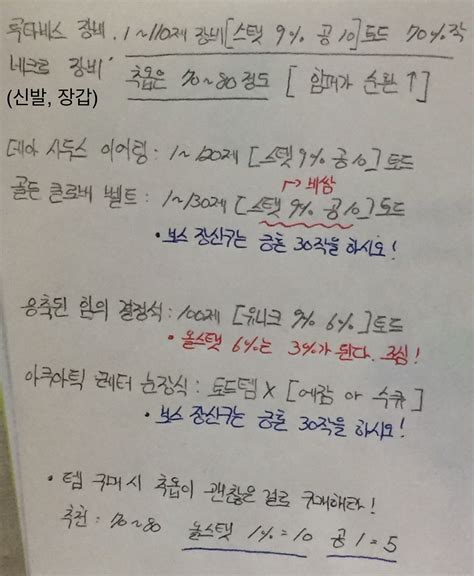 루타비스 장비 : 1~110제 장비[스탯 9% 공10]토드 70%작
네크로 장비
(신발, 장갑)
추옵은 70~80 정도 [ 앱퍼가 순환↑]
데아 시두스 이어링 : 1~120제 [스탯9% 공10]토드
골든 클로버 벨트 : 1~130제 [스탯 9% 공10]토드
↱ 비쌈
• 보스 장신구는 긍혼 30작을 하시오!
응축된 힘의 결정석 : 100제 [유니크 9% 6%]토드
• 올스탯 6%는 3%가 된다. 조심!
아쿠아틱 레터 눈장식 : 토드템 X [에잠 or 수큐]
• 보스 장신구는 긍혼 30작을 하시오!
• 템 구매시 추옵이 괜찮은 걸로 구매해라!
추천 : 70~80 올스탯 1%=10 공1=5